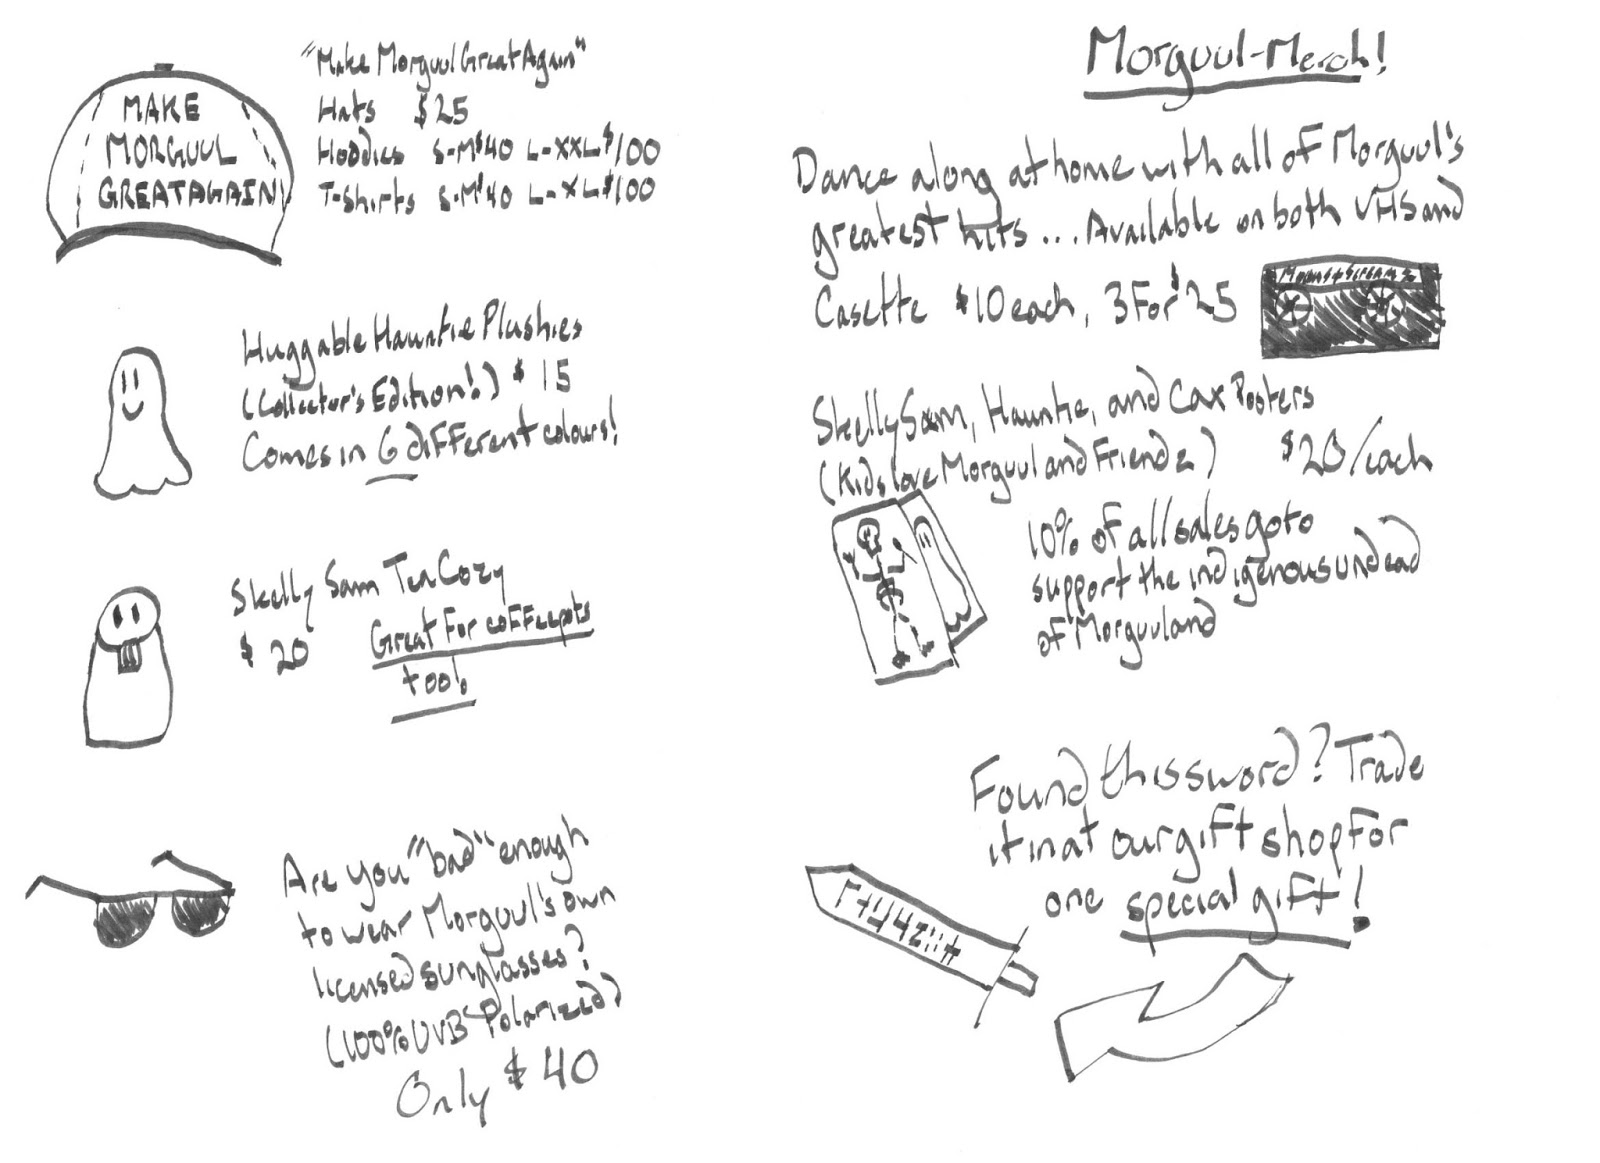 MAKE
MORGUUL
GREAT AGAIN
"Make Morguul Great Again"
Hats $25
Hoodies S-M $40 L-XXL $100
T-Shirts S-M $40 L-XL $100
Huggable Hauntie Plushies
(Collector's Edition!) $15
Comes in 6 different colours!
Skelly Sam Tea Cozy
$20 Great For coffeepots
too!
Are you "bad" enough
to wear Morguul's own
licensed sunglasses?
(100% UVB Polarized)
Only $40
Morguul-Merch!
Dance along at home with all of Morguul's
greatest hits... Available on both VHS and
Casette $10 each, 3 For $25
Moans & Screams 2
Skelly Sam, Hauntie, and Cax Posters
(Kids love Morguul and Friendz) $20/each
10% of all sales go to
support the indigenous undead
of Morguuland
Found this sword? Trade
it in at our gift shop for
one special gift!